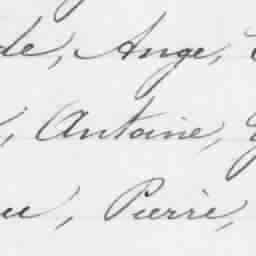 de, Ange,
, Antoine,
, Pierre,